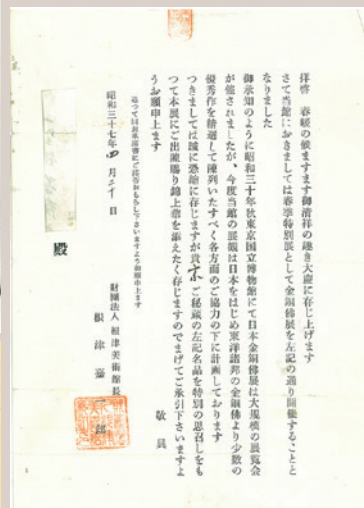 拝啓　春暖の候ますます御清祥の趣き大慶に存じ上げます
さて当館におきましては春季特別展として金銅佛展を左記の通り開催することと
なりました
御承知のように昭和三十年秋東京国立博物館にて日本金銅佛展は大規模の展覧会
が催されましたが、今度当館の展観は日本をはじめ東洋諸邦の金銅佛より少数の
優秀作を精選して陳列いたすべく各方面のご協力の下に計画しております
つきましては誠に恐縮に存じますが貴家ご秘蔵の左記名品を特別の思召しをも
つて本展にご出陳賜り錦上華を添えたく存じますのでまげてご承引下さいますよ
うお願申上ます
敬具
追つて同封承諾書にご諾否おもらし下さいますよう御願申上ます
昭和三十七年四月二十日
財團法人　根津美術館長
根津嘉一郎
殿